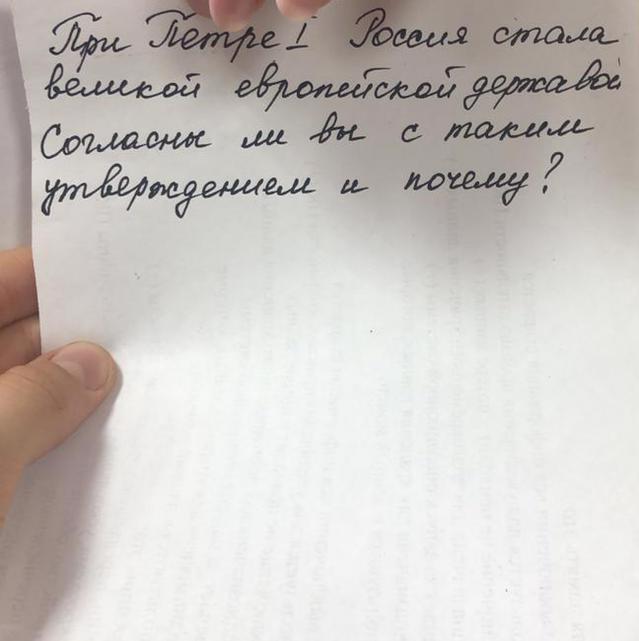 При Петре I Россия стала
великой европейской державой
Согласны ли вы с таким
утверждением и почему?